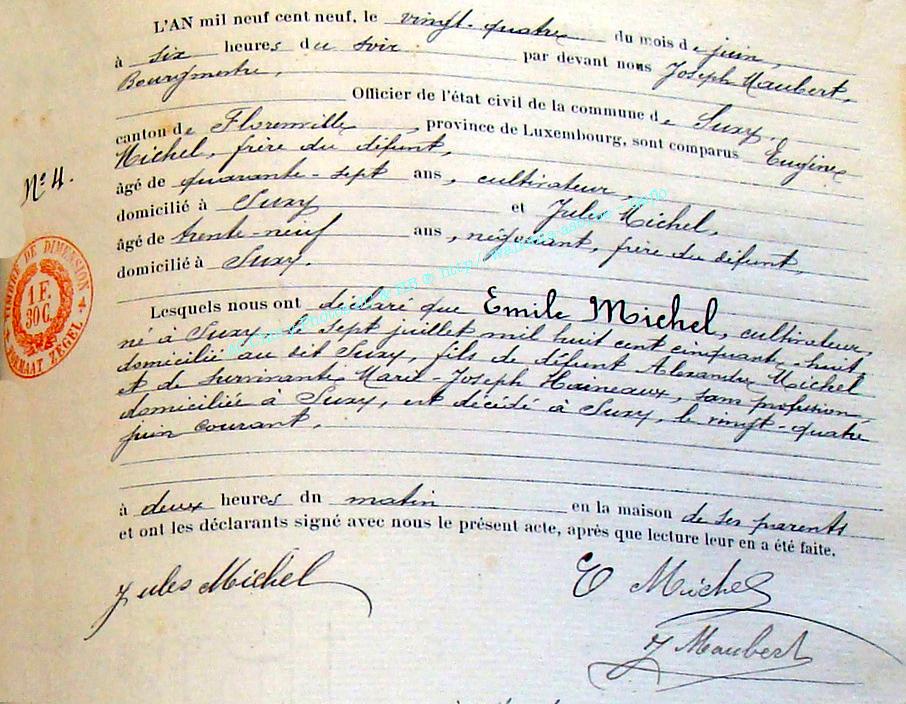 L'AN mil neuf cent neuf, le vingt-quatre du mois de juin,
à six heures du soir par devant nous Joseph Maubert,
Bourgmestre,
Officier de l'état civil de la commune de Suxy,
canton de Florenville, province de Luxembourg, sont comparus Eugène
Michel, frère du défunt,
N° 4.
âgé de quarante-sept ans, cultivateur,
domicilié à Suxy et Jules Michel,
âgé de trente-neuf ans, négociant, frère du défunt,
domicilié à Suxy.
TIMBRE DE DIMENSION
1 F.
30 C.
FORMAAT ZEGEL
Lesquels nous ont déclaré que Emile Michel, cultivateur,
né à Suxy, le sept juillet mil huit cent cinquante-huit,
domicilié au dit Suxy, fils de défunt Alexandre Michel
et de survivante Marie-Joseph Haineaux, sans profession,
domiciliée à Suxy, est décédé à Suxy, le vingt-quatre
juin courant,
à deux heures du matin en la maison de ses parents
et ont les déclarants signé avec nous le présent acte, après que lecture leur en a été faite.
Jules Michel
E Michel
J Maubert